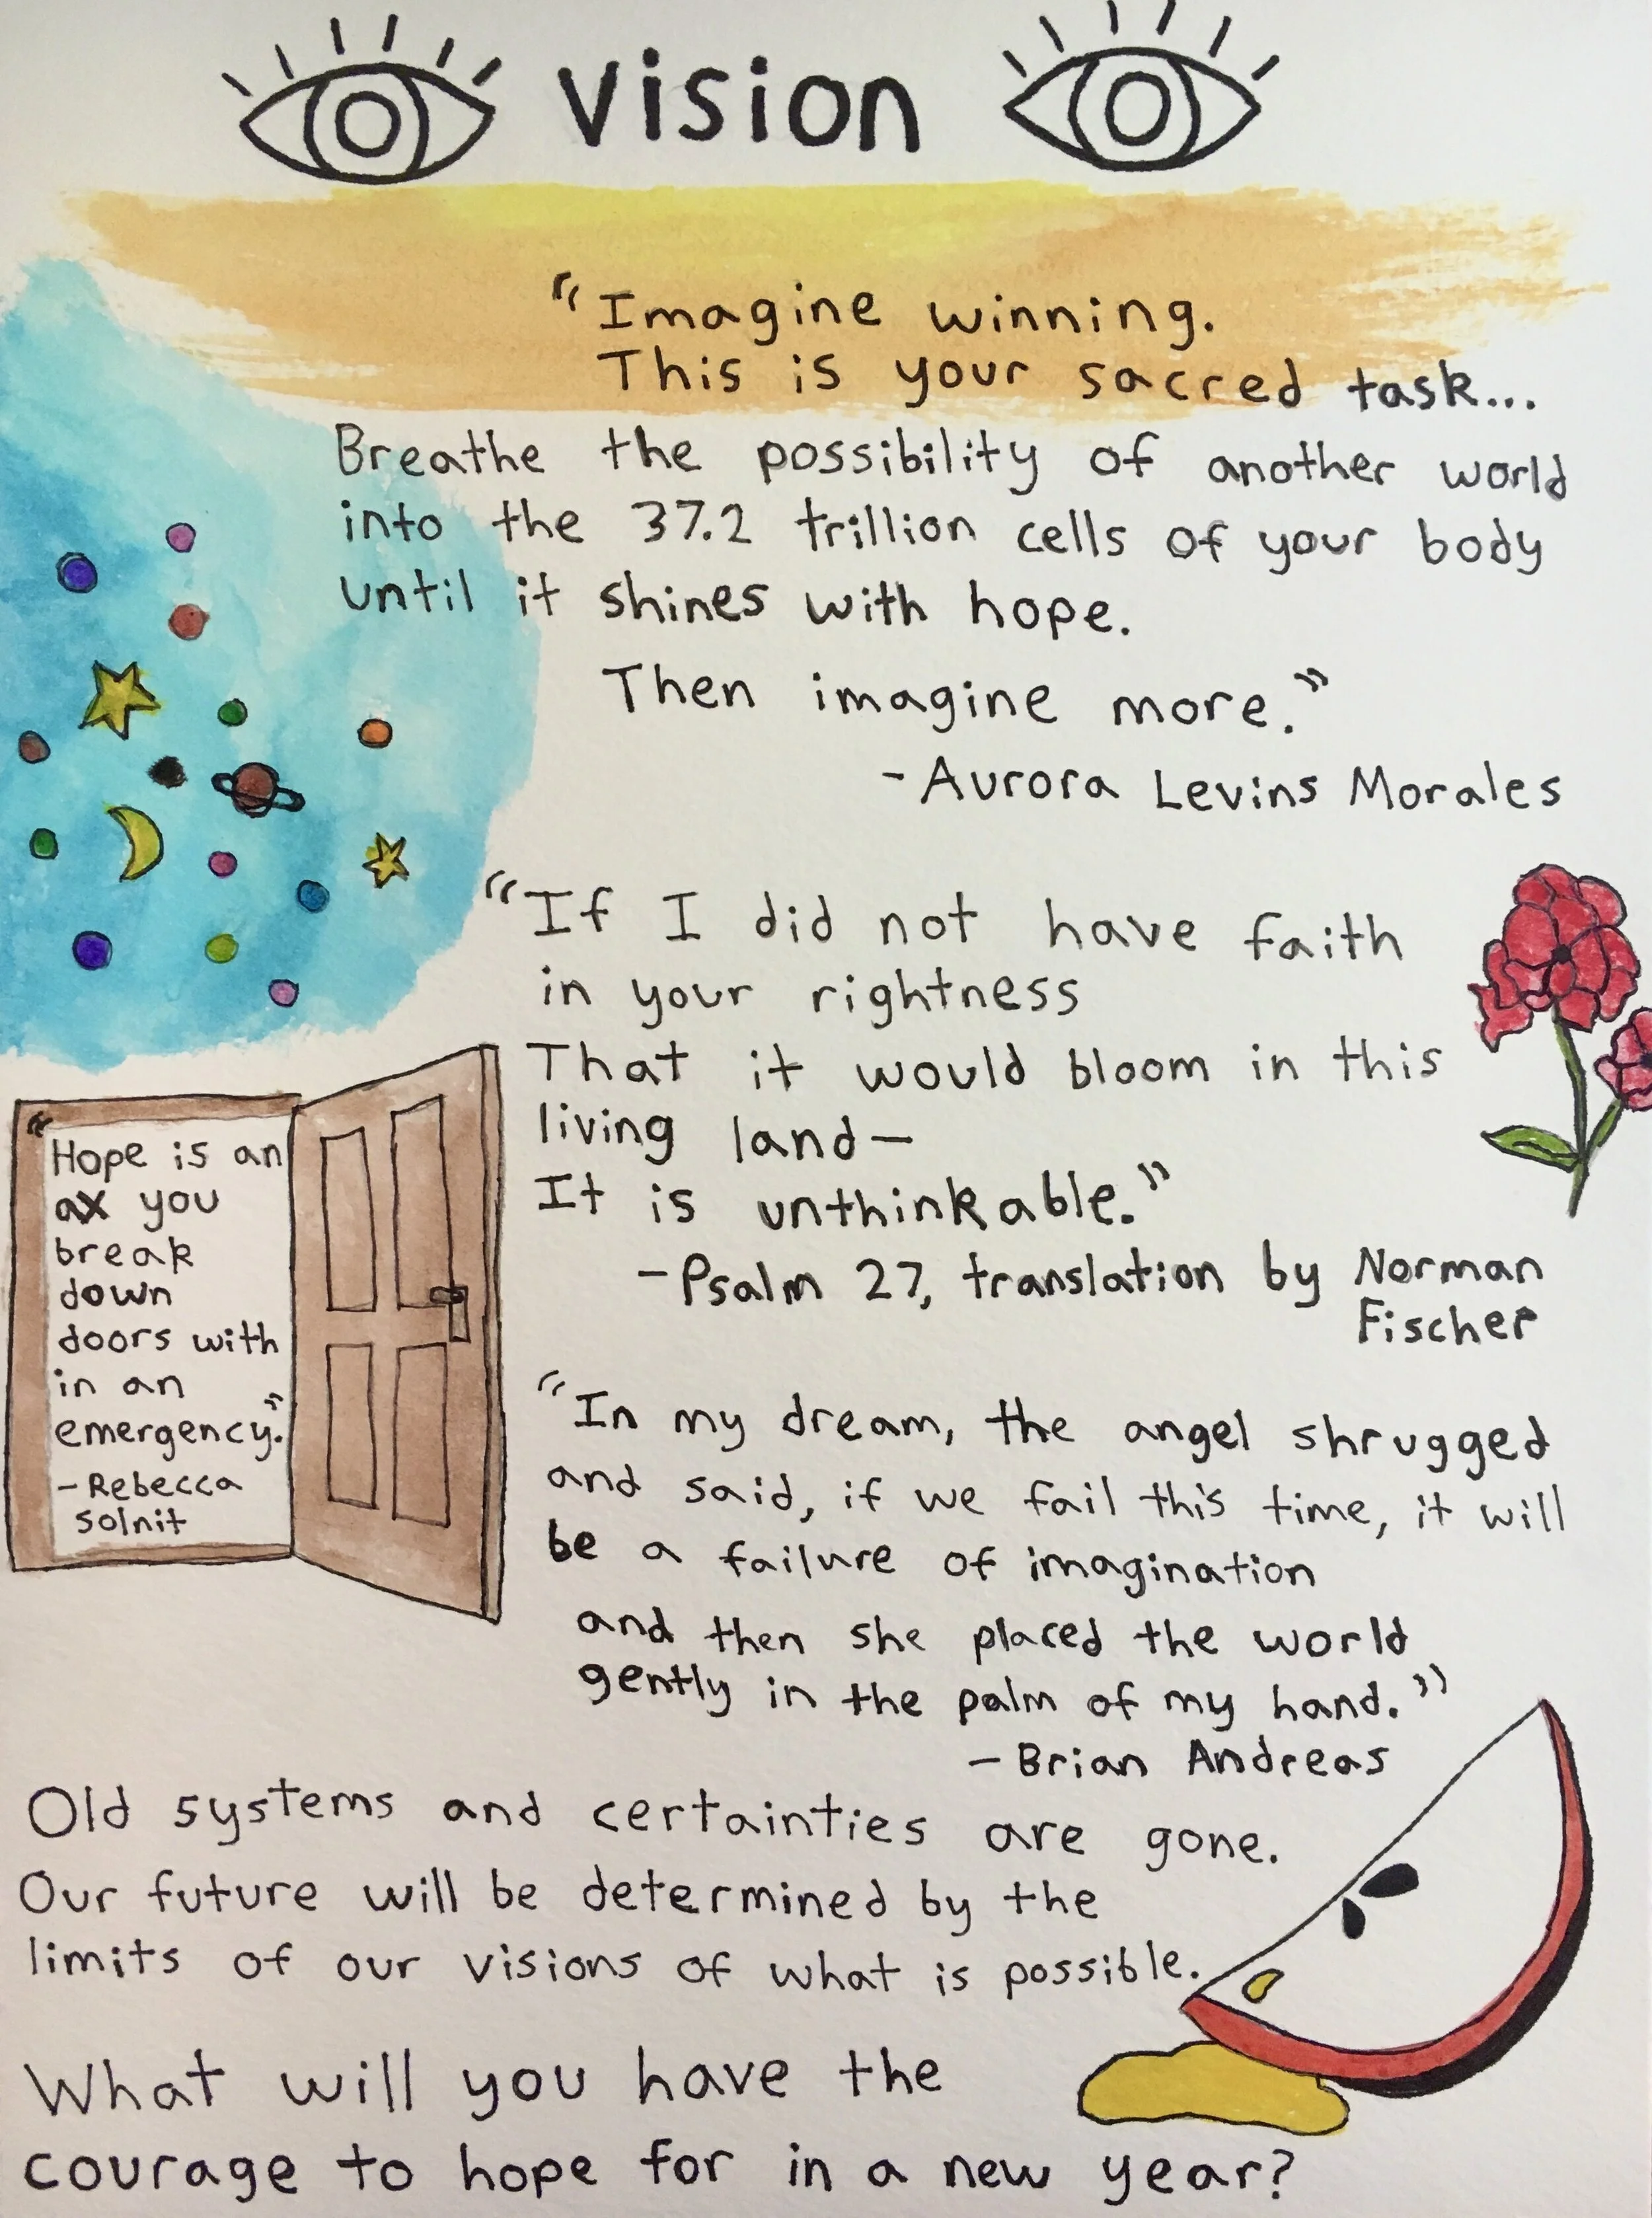 vision
"Imagine winning.
This is your sacred task...
Breathe the possibility of another world
into the 37.2 trillion cells of your body
until it shines with hope.
Then imagine more."
-Aurora Levins Morales
"If I did not have faith
in your rightness
That it would bloom in this
living land—
It is unthinkable."
-Psalm 27, translation by Norman
Fischer
"Hope is an
ax you
break
down
doors with
in an
emergency."
-Rebecca
Solnit
"In my dream, the angel shrugged
and said, if we fail this time, it will
be a failure of imagination
and then she placed the world
gently in the palm of my hand."
-Brian Andreas
Old systems and certainties are gone.
Our future will be determined by the
limits of our visions of what is possible.
What will you have the
courage to hope for in a new year?